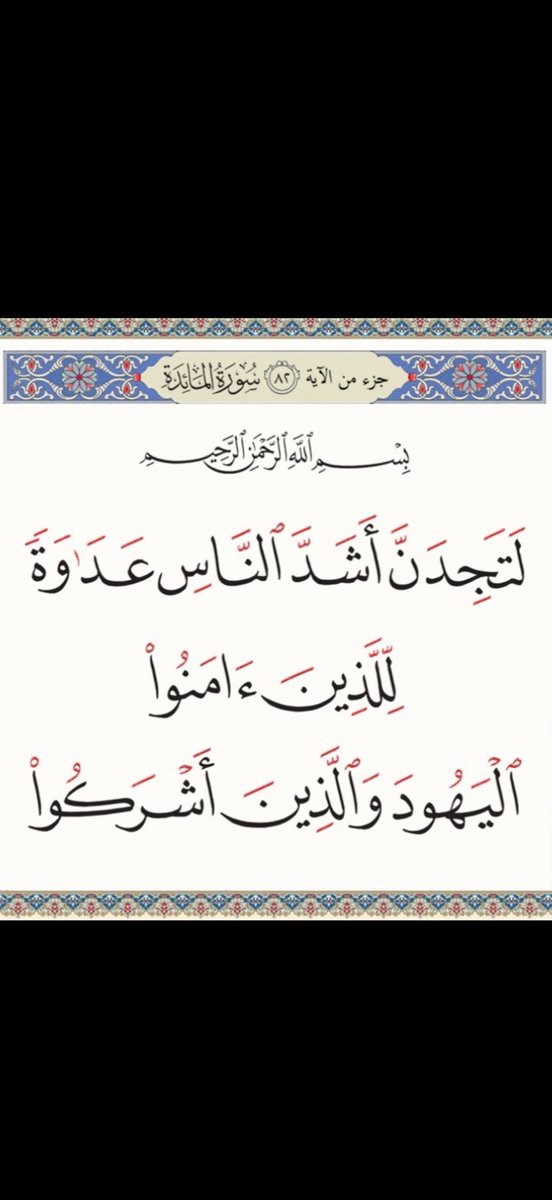 جزء من الآية ٨٢ سُورَةُ المَائِدَةِ
بِسْمِ ٱللَّهِ ٱلرَّحْمَٰنِ ٱلرَّحِيمِ
لَتَجِدَنَّ أَشَدَّ ٱلنَّاسِ عَدَٰوَةً
لِّلَّذِينَ ءَامَنُوا۟
ٱلْيَهُودَ وَٱلَّذِينَ أَشْرَكُوا۟